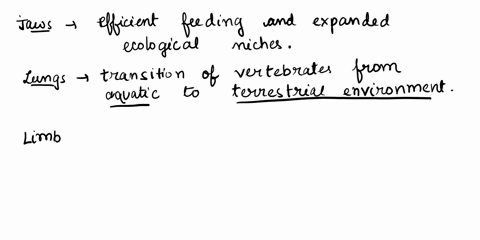 Jaws → efficient feeding and expanded
ecological niches.
Lungs → transition of vertebrates from
aquatic to terrestrial environment.
Limb